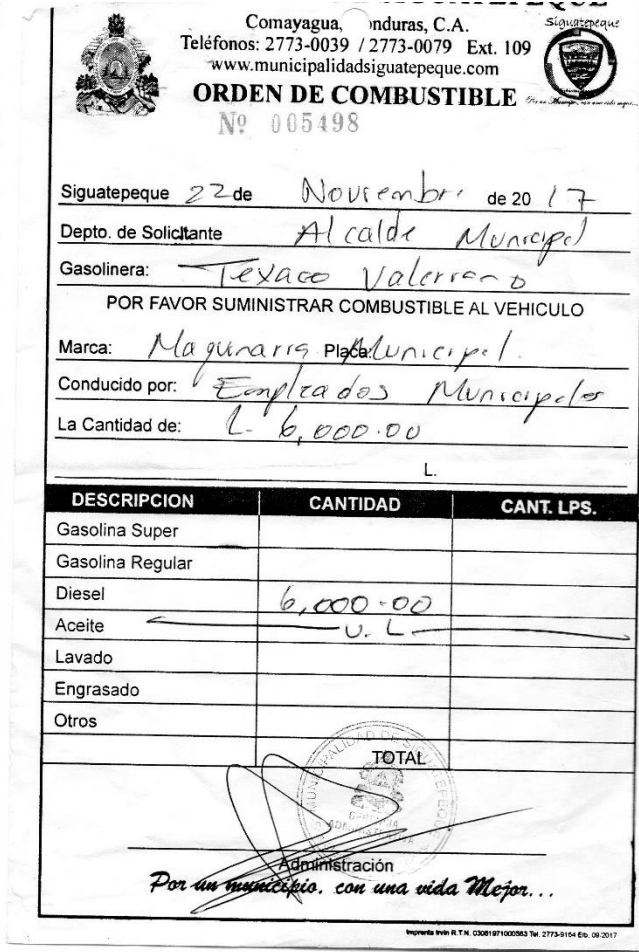 Comayagua, onduras, C.A.
Teléfonos: 2773-0039 / 2773-0079 Ext. 109
www.municipalidadsiguatepeque.com
Siguatepeque
ORDEN DE COMBUSTIBLE
Nº 005498
Siguatepeque 22 de Noviembre de 20 17
Depto. de Solicitante Alcalde Municipal
Gasolinera: Texaco Valeriano
POR FAVOR SUMINISTRAR COMBUSTIBLE AL VEHICULO
Marca: Maquinaria Placa: Municipal.
Conducido por: Empleados Municipales
La Cantidad de: L. 6,000.00
L.
DESCRIPCION CANTIDAD CANT. LPS.
Gasolina Super
Gasolina Regular
Diesel 6,000.00
Aceite U. L
Lavado
Engrasado
Otros
TOTAL
MUNICIPALIDAD DE SIGUATEPEQUE
Administración
Por un municipio, con una vida Mejor...
Imprenta Irvin R.T.N. 03061971000563 Tel. 2773-9164 Elb. 09-2017